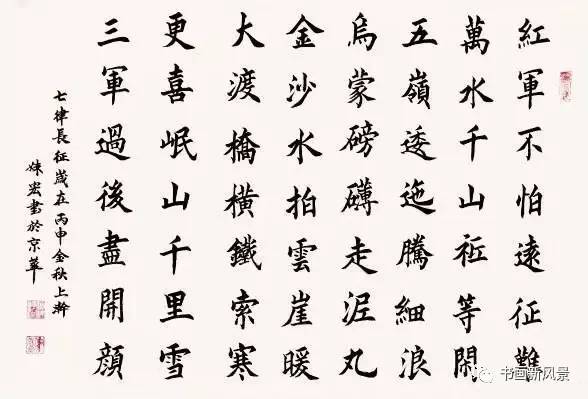 紅軍不怕遠征難
萬水千山祗等閑
五嶺逶迤騰細浪
烏蒙磅礴走泥丸
金沙水拍雲崖暖
大渡橋橫鐵索寒
更喜岷山千里雪
三軍過後盡開顏
七律長征歲在丙申金秋上澣
宏書於京華
书画新风景